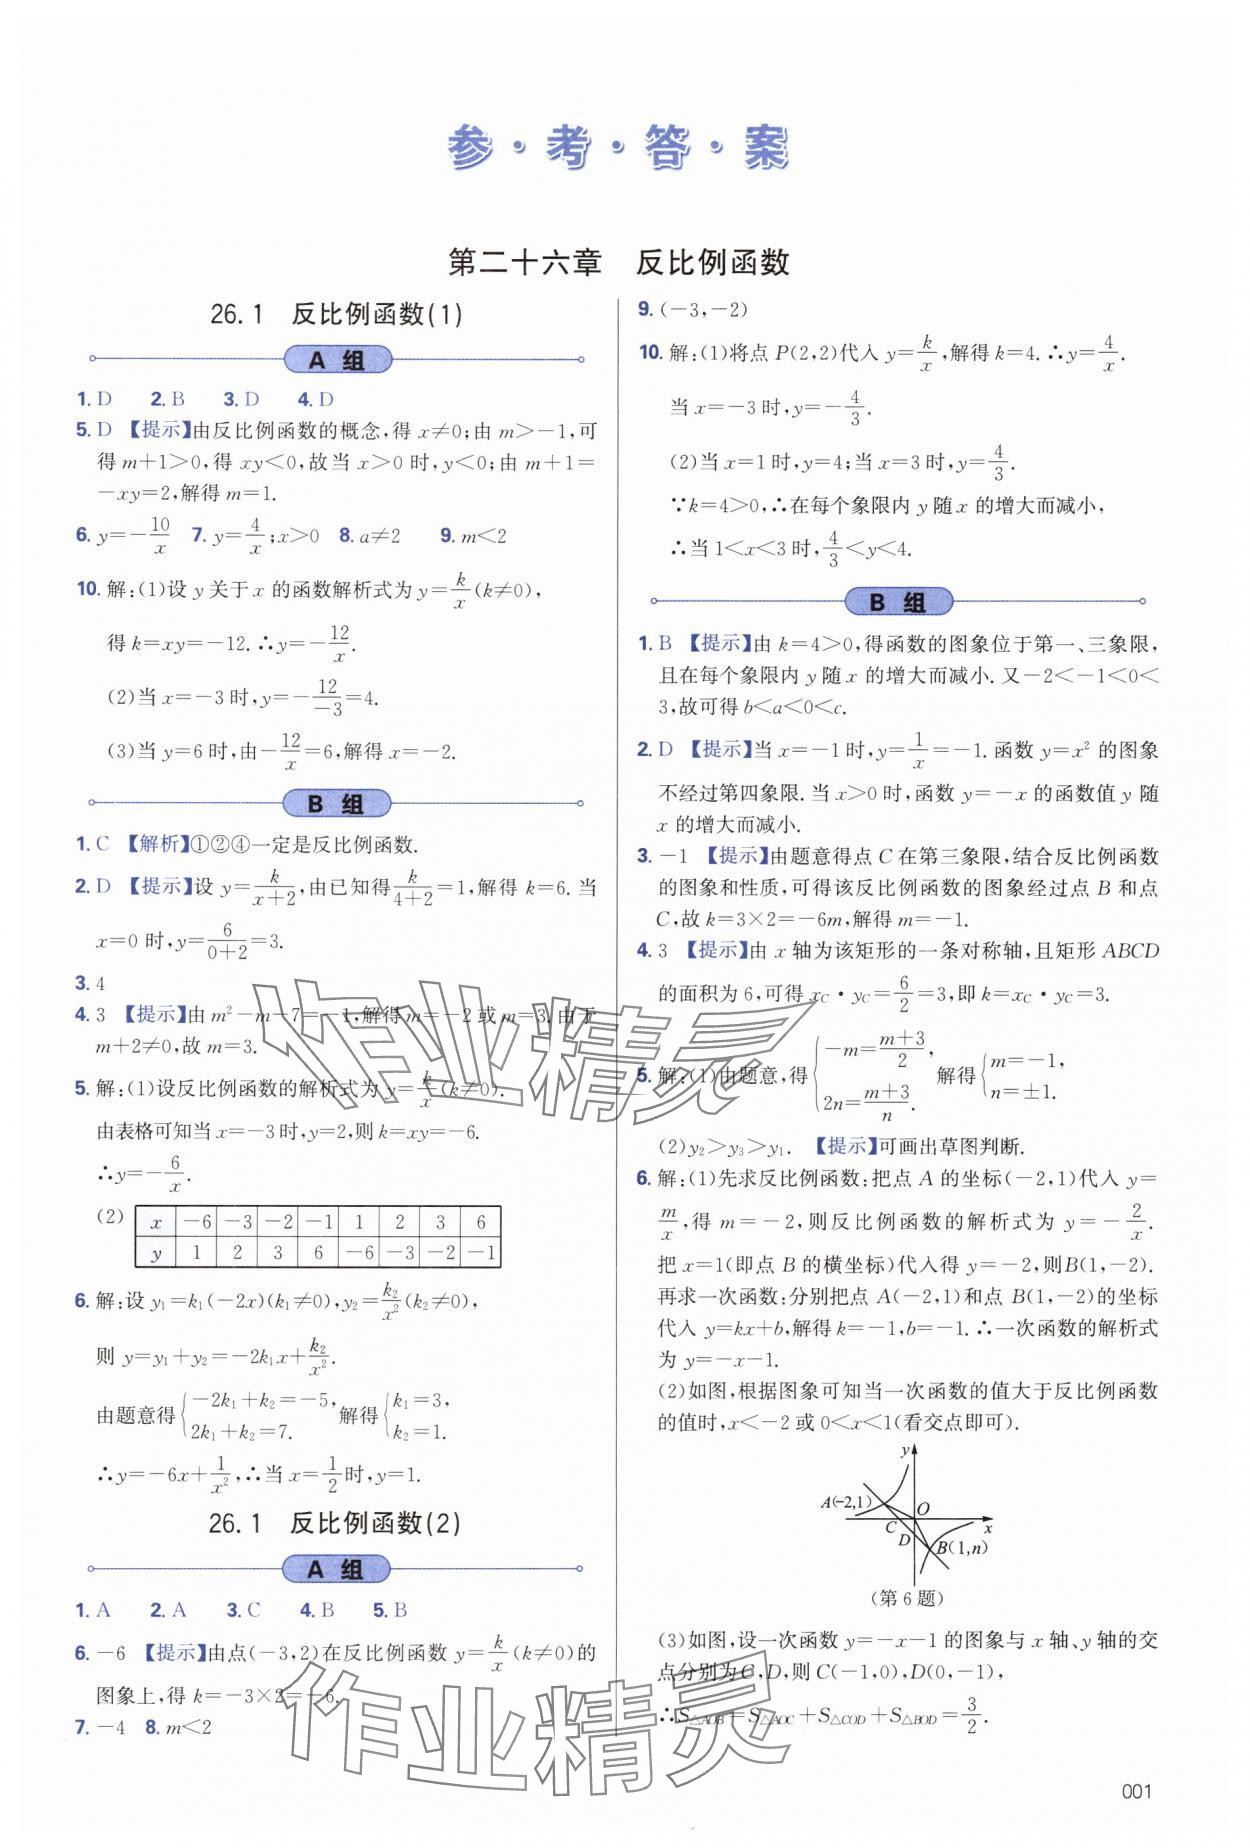 参·考·答·案
第二十六章 反比例函数
26.1 反比例函数(1)
A 组
1. D 2. B 3. D 4. D
5. D 【提示】由反比例函数的概念,得 x≠0;由 m>-1,可
得 m+1>0,得 xy<0,故当 x>0 时,y<0;由 m+1=
-xy=2,解得 m=1.
6. y=-10/x 7. y=4/x;x>0 8. a≠2 9. m<2
10. 解:(1)设 y 关于 x 的函数解析式为 y=k/x(k≠0),
得 k=xy=-12.∴y=-12/x.
(2)当 x=-3 时,y=-12/-3=4.
(3)当 y=6 时,由-12/x=6,解得 x=-2.
B 组
1. C 【解析】①②④一定是反比例函数.
2. D 【提示】设 y=k/(x+2),由已知得k/(4+2)=1,解得 k=6.当
x=0 时,y=6/(0+2)=3.
3. 4
4. 3 【提示】由 m²-m-7=-1,解得 m=-2 或 m=3.由于
m+2≠0,故 m=3.
5. 解:(1)设反比例函数的解析式为 y=k/x(k≠0).
由表格可知当 x=-3 时,y=2,则 k=xy=-6.
∴y=-6/x.
(2) x -6 -3 -2 -1 1 2 3 6
y 1 2 3 6 -6 -3 -2 -1
6. 解:设 y₁=k₁(-2x)(k₁≠0),y₂=k₂/x²(k₂≠0),
则 y=y₁+y₂=-2k₁x+k₂/x².
由题意得{-2k₁+k₂=-5, 2k₁+k₂=7. 解得{k₁=3, k₂=1.
∴y=-6x+1/x²,∴当 x=1/2时,y=1.
26.1 反比例函数(2)
A 组
1. A 2. A 3. C 4. B 5. B
6. -6 【提示】由点(-3,2)在反比例函数 y=k/x(k≠0)的
图象上,得 k=-3×2=-6.
7. -4 8. m<2
9. (-3,-2)
10. 解:(1)将点 P(2,2)代入 y=k/x,解得 k=4.∴y=4/x.
当 x=-3 时,y=-4/3.
(2)当 x=1 时,y=4;当 x=3 时,y=4/3.
∵k=4>0,∴在每个象限内 y 随 x 的增大而减小,
∴当 1<x<3 时,4/3<y<4.
B 组
1. B 【提示】由 k=4>0,得函数的图象位于第一、三象限,
且在每个象限内 y 随 x 的增大而减小.又-2<-1<0<
3,故可得 b<a<0<c.
2. D 【提示】当 x=-1 时,y=1/x=-1.函数 y=x² 的图象
不经过第四象限.当 x>0 时,函数 y=-x 的函数值 y 随
x 的增大而减小.
3. -1 【提示】由题意得点 C 在第三象限,结合反比例函数
的图象和性质,可得该反比例函数的图象经过点 B 和点
C,故 k=3×2=-6m,解得 m=-1.
4. 3 【提示】由 x 轴为该矩形的一条对称轴,且矩形 ABCD
的面积为 6,可得 x_C·y_C=6/2=3,即 k=x_C·y_C=3.
5. 解:(1)由题意,得{-m=(m+3)/2, 2n=(m+3)/n. 解得{m=-1, n=±1.
(2)y₂>y₃>y₁. 【提示】可画出草图判断.
6. 解:(1)先求反比例函数:把点 A 的坐标(-2,1)代入 y=
m/x,得 m=-2,则反比例函数的解析式为 y=-2/x.
把 x=1(即点 B 的横坐标)代入得 y=-2,则B(1,-2).
再求一次函数:分别把点 A(-2,1)和点 B(1,-2)的坐标
代入 y=kx+b,解得 k=-1,b=-1.∴一次函数的解析式
为 y=-x-1.
(2)如图,根据图象可知当一次函数的值大于反比例函数
的值时,x<-2 或 0<x<1(看交点即可).
y
A(-2,1)
O
C
x
D
B(1,n)
(第 6 题)
(3)如图,设一次函数 y=-x-1 的图象与 x 轴、y 轴的交
点分别为C,D,则 C(-1,0),D(0,-1),
∴S△AOB=S△AOC+S△COD+S△BOD=3/2.
作业精灵
作业精灵
001